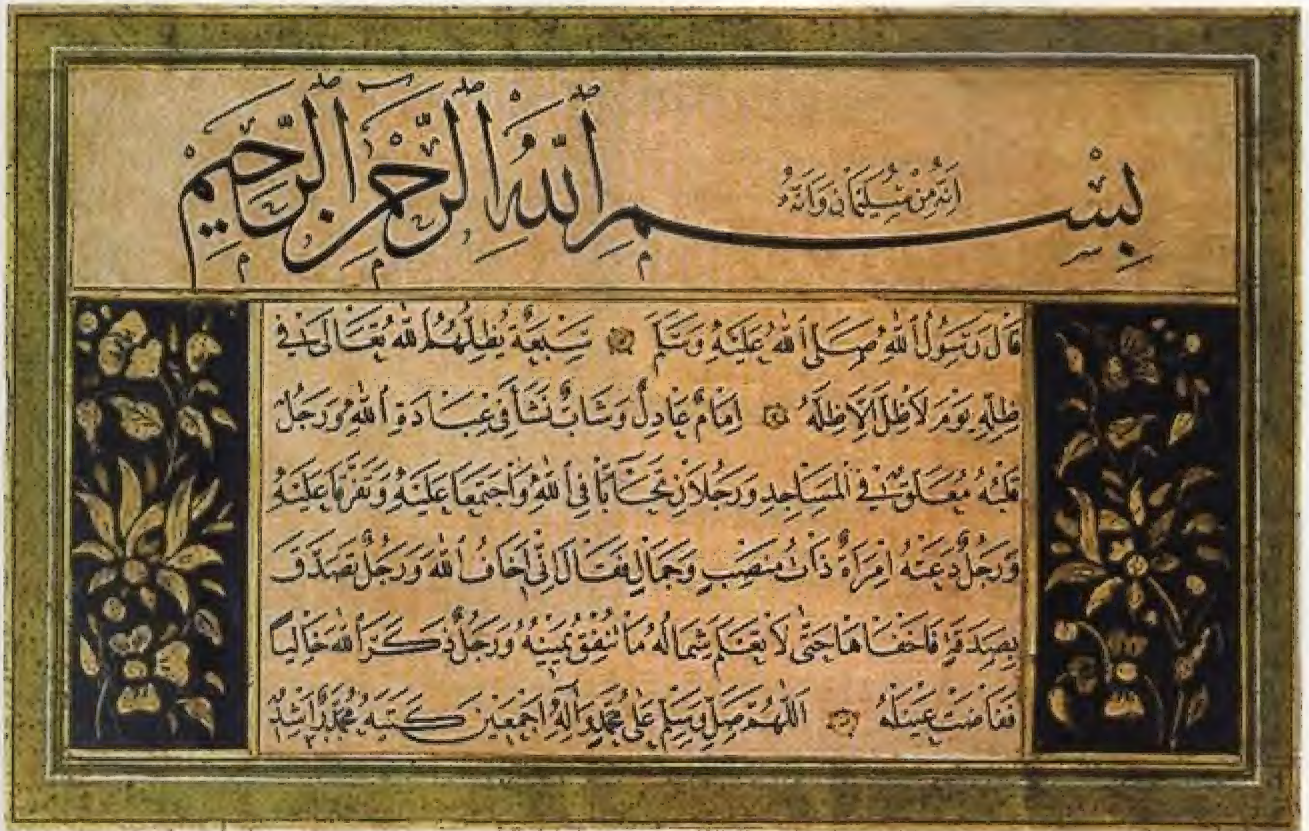 بِسْمِ ٱللَّهِ ٱلرَّحْمٰنِ ٱلرَّحِيمِ
اِنَّهُ مِنْ سُلَيْمَانَ وَاِنَّهُ
قَالَ رَسُولُ ٱللهِ صَلَّى ٱللهُ عَلَيْهِ وَسَلَّمَ سَبْعَةٌ يُظِلُّهُمُ ٱللهُ تَعَالَى فِي
ظِلِّهِ يَوْمَ لَا ظِلَّ اِلَّا ظِلُّهُ اِمَامٌ عَادِلٌ وَشَابٌّ نَشَأَ فِي عِبَادَةِ ٱللهِ وَرَجُلٌ
قَلْبُهُ مُعَلَّقٌ فِي ٱلْمَسَاجِدِ وَرَجُلَانِ تَحَابَّا فِي ٱللهِ وَٱجْتَمَعَا عَلَيْهِ وَتَفَرَّقَا عَلَيْهِ
وَرَجُلٌ دَعَتْهُ اِمْرَأَةٌ ذَاتُ مَنْصِبٍ وَجَمَالٍ فَقَالَ اِنِّي اَخَافُ ٱللهَ وَرَجُلٌ تَصَدَّقَ
بِصَدَقَةٍ فَاَخْفَاهَا حَتَّى لَا تَعْلَمَ شِمَالُهُ مَا تُنْفِقُ يَمِينُهُ وَرَجُلٌ ذَكَرَ ٱللهَ خَالِيًا
فَفَاضَتْ عَيْنَاهُ اَللّٰهُمَّ صَلِّ وَسَلِّمْ عَلَى مُحَمَّدٍ وَآلِهِ اَجْمَعِينَ كَتَبَهُ مُحَمَّد رَاشِد